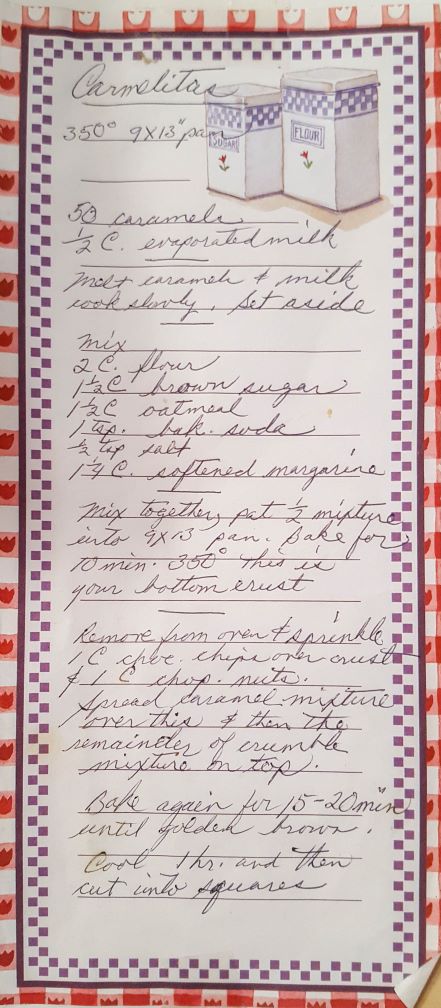 Carmelitas
350° 9X13" pan
SUGAR
FLOUR
50 caramels
1/2 C. evaporated milk
Melt caramels & milk
cook slowly. Set aside
Mix
2 C. flour
1 1/2 C brown sugar
1 1/2 C oatmeal
1 tsp. bak. soda
1/2 tsp salt
1 1/4 C. softened margarine
Mix together, pat 1/2 mixture
into 9X13 pan. Bake for
10 min. 350° This is
your bottom crust
Remove from oven & sprinkle
1 C choc. chips over crust
& 1 C chop. nuts.
Spread caramel mixture
over this & then the
remainder of crumble
mixture on top.
Bake again for 15-20 min
until golden brown.
Cool 1 hr. and then
cut into squares